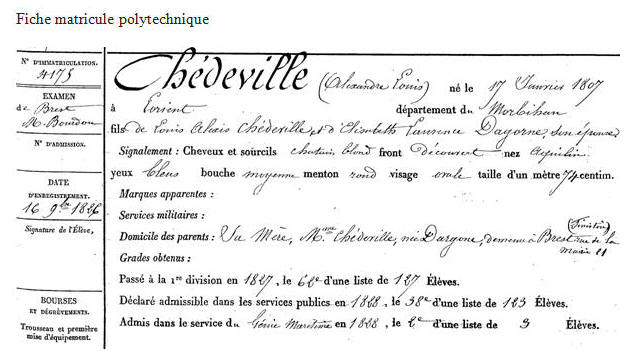 Fiche matricule polytechnique
N° D'IMMATRICULATION.
4175
EXAMEN
de Brest
M. Bourdon
N° D'ADMISSION.
DATE
D'ENREGISTREMENT.
16 9bre 1826
Signature de l'Élève,
BOURSES
ET DÉGRÈVEMENTS.
Trousseau et première
mise d'équipement.
Chédeville (Alexandre Louis) né le 17 Janvier 1807
à Lorient département du Morbihan
fils de Louis Alexis Chédeville, et d'Elisabeth Laurence Dagorne, son épouse
Signalement : Cheveux et sourcils chatain blond front découvert nez Aquilin
yeux bleus bouche moyenne menton rond visage ovale taille d'un mètre 74 centim.
Marques apparentes :
Services militaires :
Domicile des parents : Sa Mère, Mme Chédeville, née Dargone, demeure à Brest (Finistère) rue de la mairie 21
Grades obtenus :
Passé à la 1re division en 1827, le 62e d'une liste de 127 Élèves.
Déclaré admissible dans les services publics en 1828, le 38e d'une liste de 123 Élèves.
Admis dans le service du Génie Maritime en 1828, le 2e d'une liste de 3 Élèves.